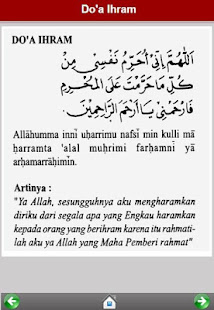 Do'a Ihram
DO'A IHRAM
اَللّٰهُمَّ اِنِّيْ اُحَرِّمُ نَفْسِيْ مِنْ
كُلِّ مَا حَرَّمْتَ عَلَى الْمُحْرِمِ
فَارْحَمْنِيْ يَا اَرْحَمَ الرَّاحِمِيْنَ.
Allāhumma innī uḥarrimu nafsī min kulli mā
ḥarramta 'alal muḥrimi farḥamnī yā
arḥamarrāḥimīn.
Artinya :
"Ya Allah, sesungguhnya aku mengharamkan
diriku dari segala apa yang Engkau haramkan
kepada orang yang berihram karena itu rahmati-
lah aku ya Allah yang Maha Pemberi rahmat"